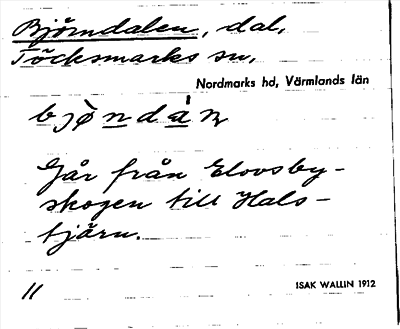 Björndalen, dal,
Töcksmarks sn,
Nordmarks hd, Värmlands län
Går från Elovsby-
skogen till Hals-
tjärn.
11
ISAK WALLIN 1912